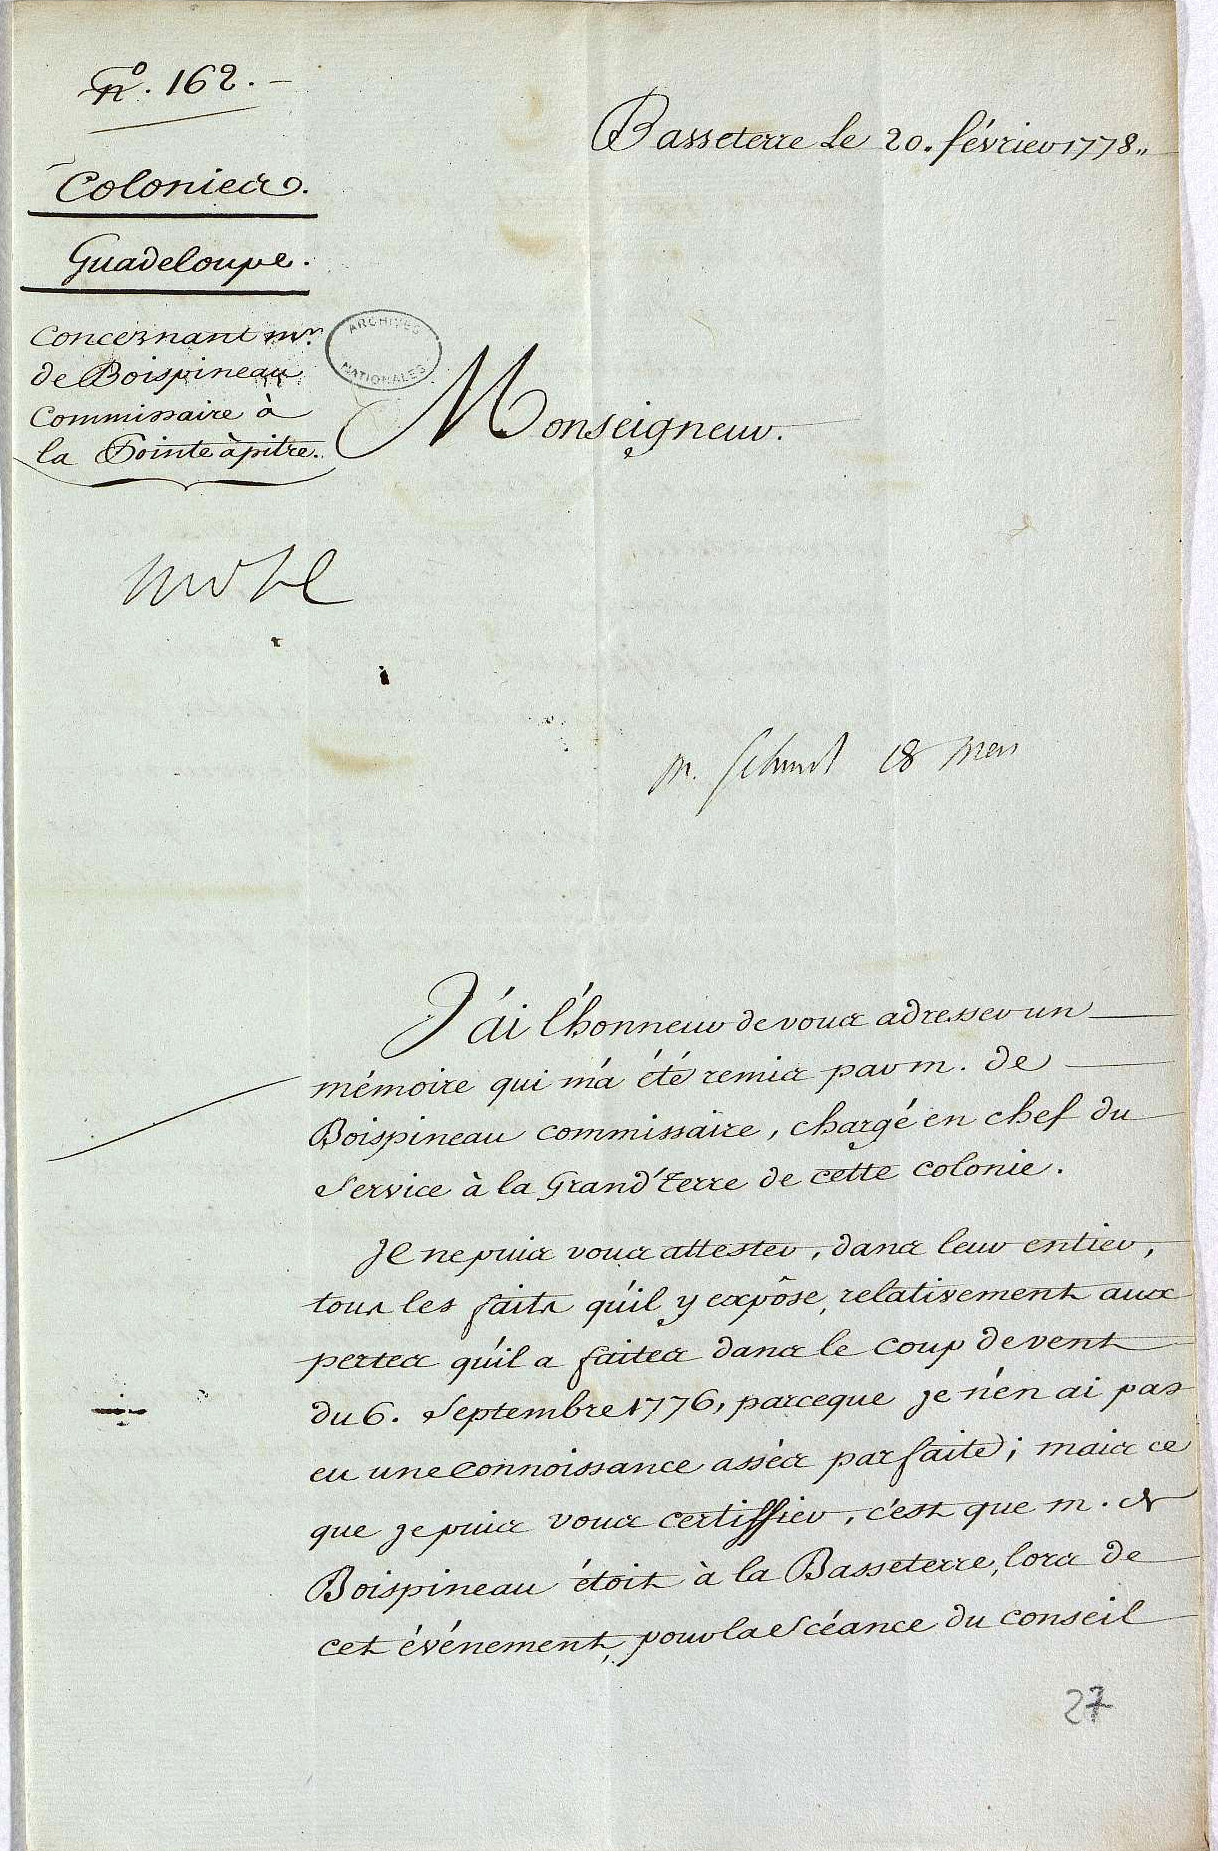 n°. 162.
Basseterre le 20. février 1778.
Colonies.
Guadeloupe.
Concernant mr.
de Boispineau
Commissaire à
la Pointe àpitre.
ARCHIVES
NATIONALES
Monseigneur.
m. 18 mars
J'ai l'honneur de vous adresser un
mémoire qui m'a été remis par m. de
Boispineau commissaire, chargé en chef du
Service à la Grand'Terre de cette colonie.
Je ne puis vous attester, dans leur entier,
tous les faits qu'il y expôse, relativement aux
pertes qu'il a faites dans le coup de vent
du 6. Septembre 1776, parceque je n'en ai pas
eu une connoissance assés parfaite; mais ce
que je puis vous certiffier, c'est que m. de
Boispineau étoit à la Basseterre, lors de
cet événement, pour la Scéance du conseil
27